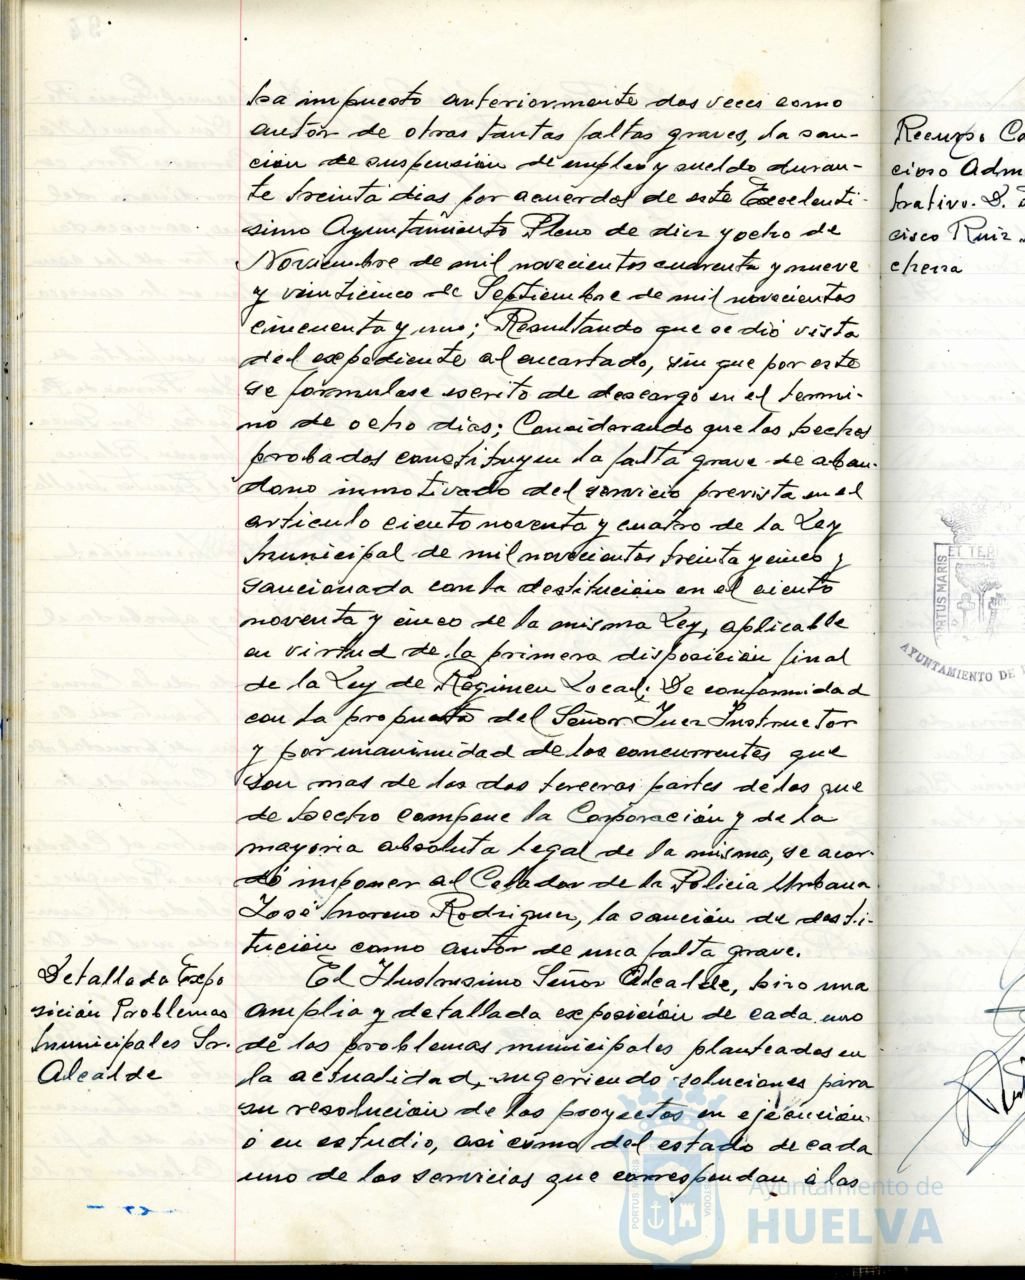 ha impuesto anteriormente dos veces como
autor de otras tantas faltas graves, la san-
ción de suspensión de empleo y sueldo duran-
te treinta dias por acuerdos de este Excelenti-
simo Ayuntamiento Pleno de diez y ocho de
Noviembre de mil novecientos cuarenta y nueve
y veinticinco de Septiembre de mil novecientos
cincuenta y uno; Resultando que se dió vista
del expediente al encartado, sin que por este
se formulase escrito de descargo en el termi-
no de ocho dias; Considerando que los hechos
probados constituyen la falta grave de aban-
dono inmotivado del servicio prevista en el
articulo ciento noventa y cuatro de la Ley
Municipal de mil novecientos treinta y cinco y
sancionada con la destitución en el ciento
noventa y cinco de la misma Ley, aplicable
en virtud de la primera disposición final
de la Ley de Régimen Local; De conformidad
con la propuesta del Señor Juez Instructor
y por unanimidad de los concurrentes que
son mas de las dos terceras partes de los que
de hecho compone la Corporación y de la
mayoria absoluta legal de la misma, se acor-
dó imponer al Celador de la Policia Urbana
José Moreno Rodriguez, la sanción de desti-
tución como autor de una falta grave.
Detallada Expo
sición Problemas
Municipales Sr.
Alcalde
El Ilustrisimo Señor Alcalde, hizo una
amplia y detallada exposición de cada uno
de los problemas municipales planteados en
la actualidad, sugeriendo soluciones para
su resolución de los proyectos en ejecución
ó en estudio, asi cómo del estado de cada
uno de los servicios que correspondan á las
Recurso Co
cioso Adm
trativo. D.
cisco Ruiz
cherra
PORTUS MARIS
ET TER
AYUNTAMIENTO DE
PORTUS MARIS
CUSTODIA
Ayuntamiento de
HUELVA